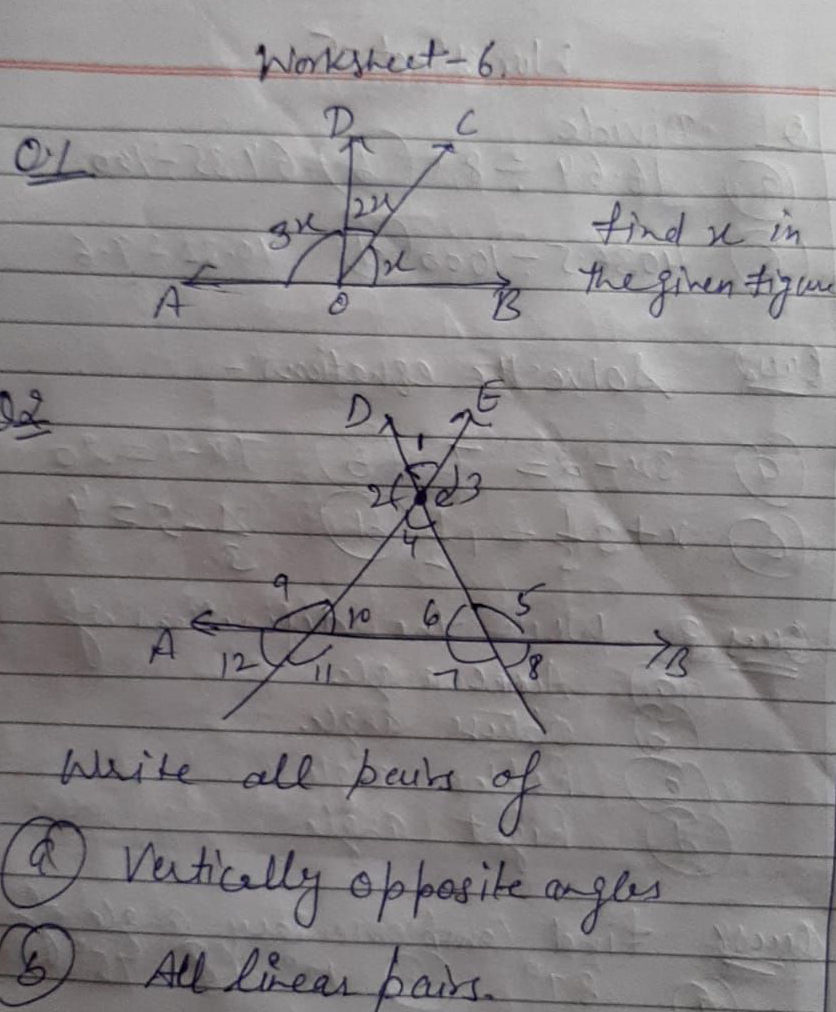 Worksheet-6.
D C
Q.1
3x 2x x
find x in
the given figure
A O B
Q2
D E
1
2 3
4
9 10 6 5
A B
12 11 7 8
Write all pairs of
(a) Vertically opposite angles
(b) All linear pairs.